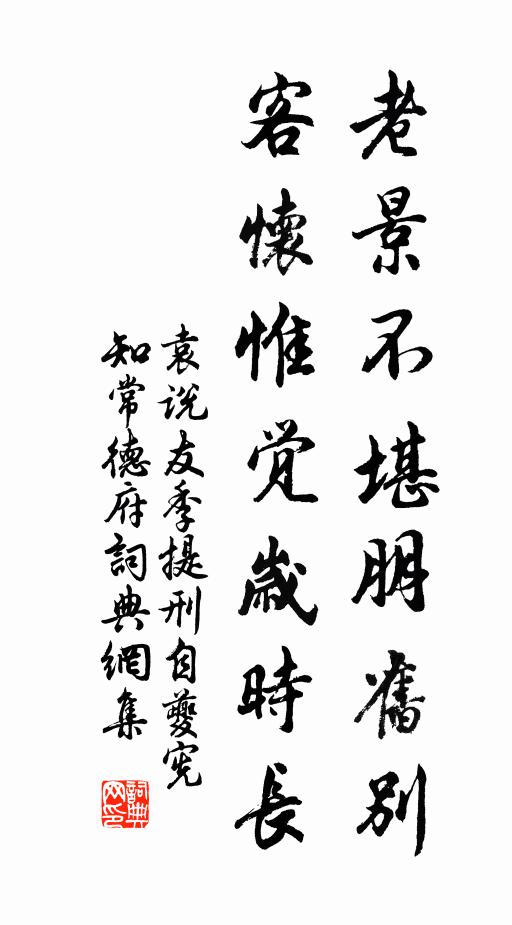 老景不堪朋舊別
客懷惟觉歲時長
袁说友季提刑自夔宪
知常德府詞典網集
詞典网印